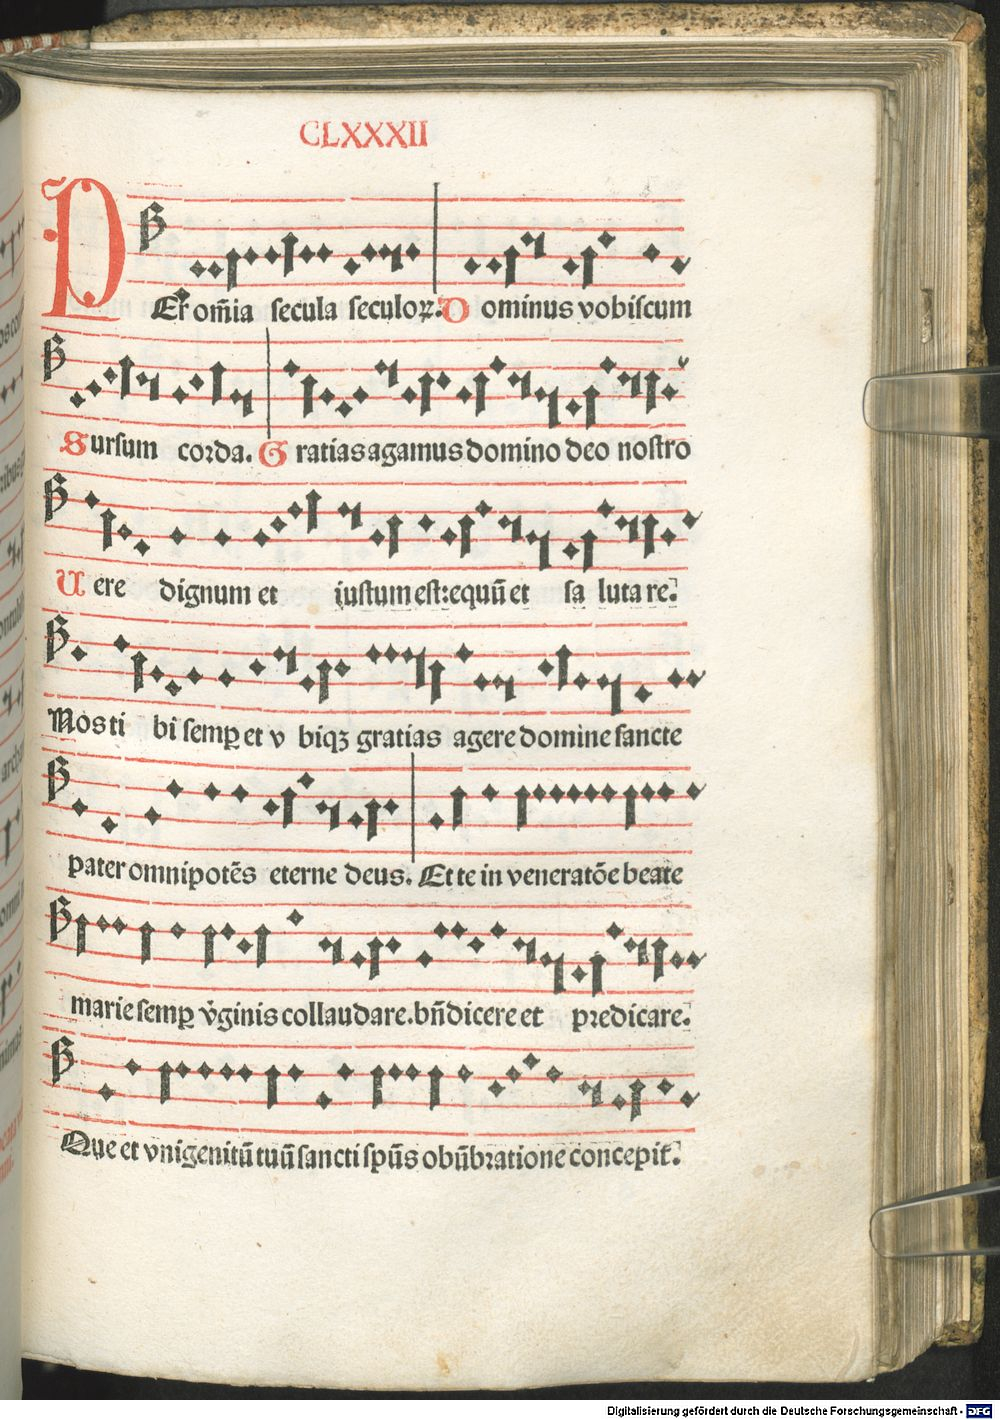 CLXXXII
PEr om̄ia secula seculoꝝ. Dominus vobiscum
Sursum corda. Gratias agamus domino deo nostro
Uere dignum et iustum est: equū et salutare.
Nos tibi semꝑ et vbiqꝫ gratias agere domine sancte
pater omnipotēs eterne deus. Et te in veneratōe beate
marie semꝑ v̄ginis collaudare. bn̄dicere et predicare.
Que et vnigenitū tuū sancti spūs obūbratione concepit.
Digitalisierung gefördert durch die Deutsche Forschungsgemeinschaft - DFG